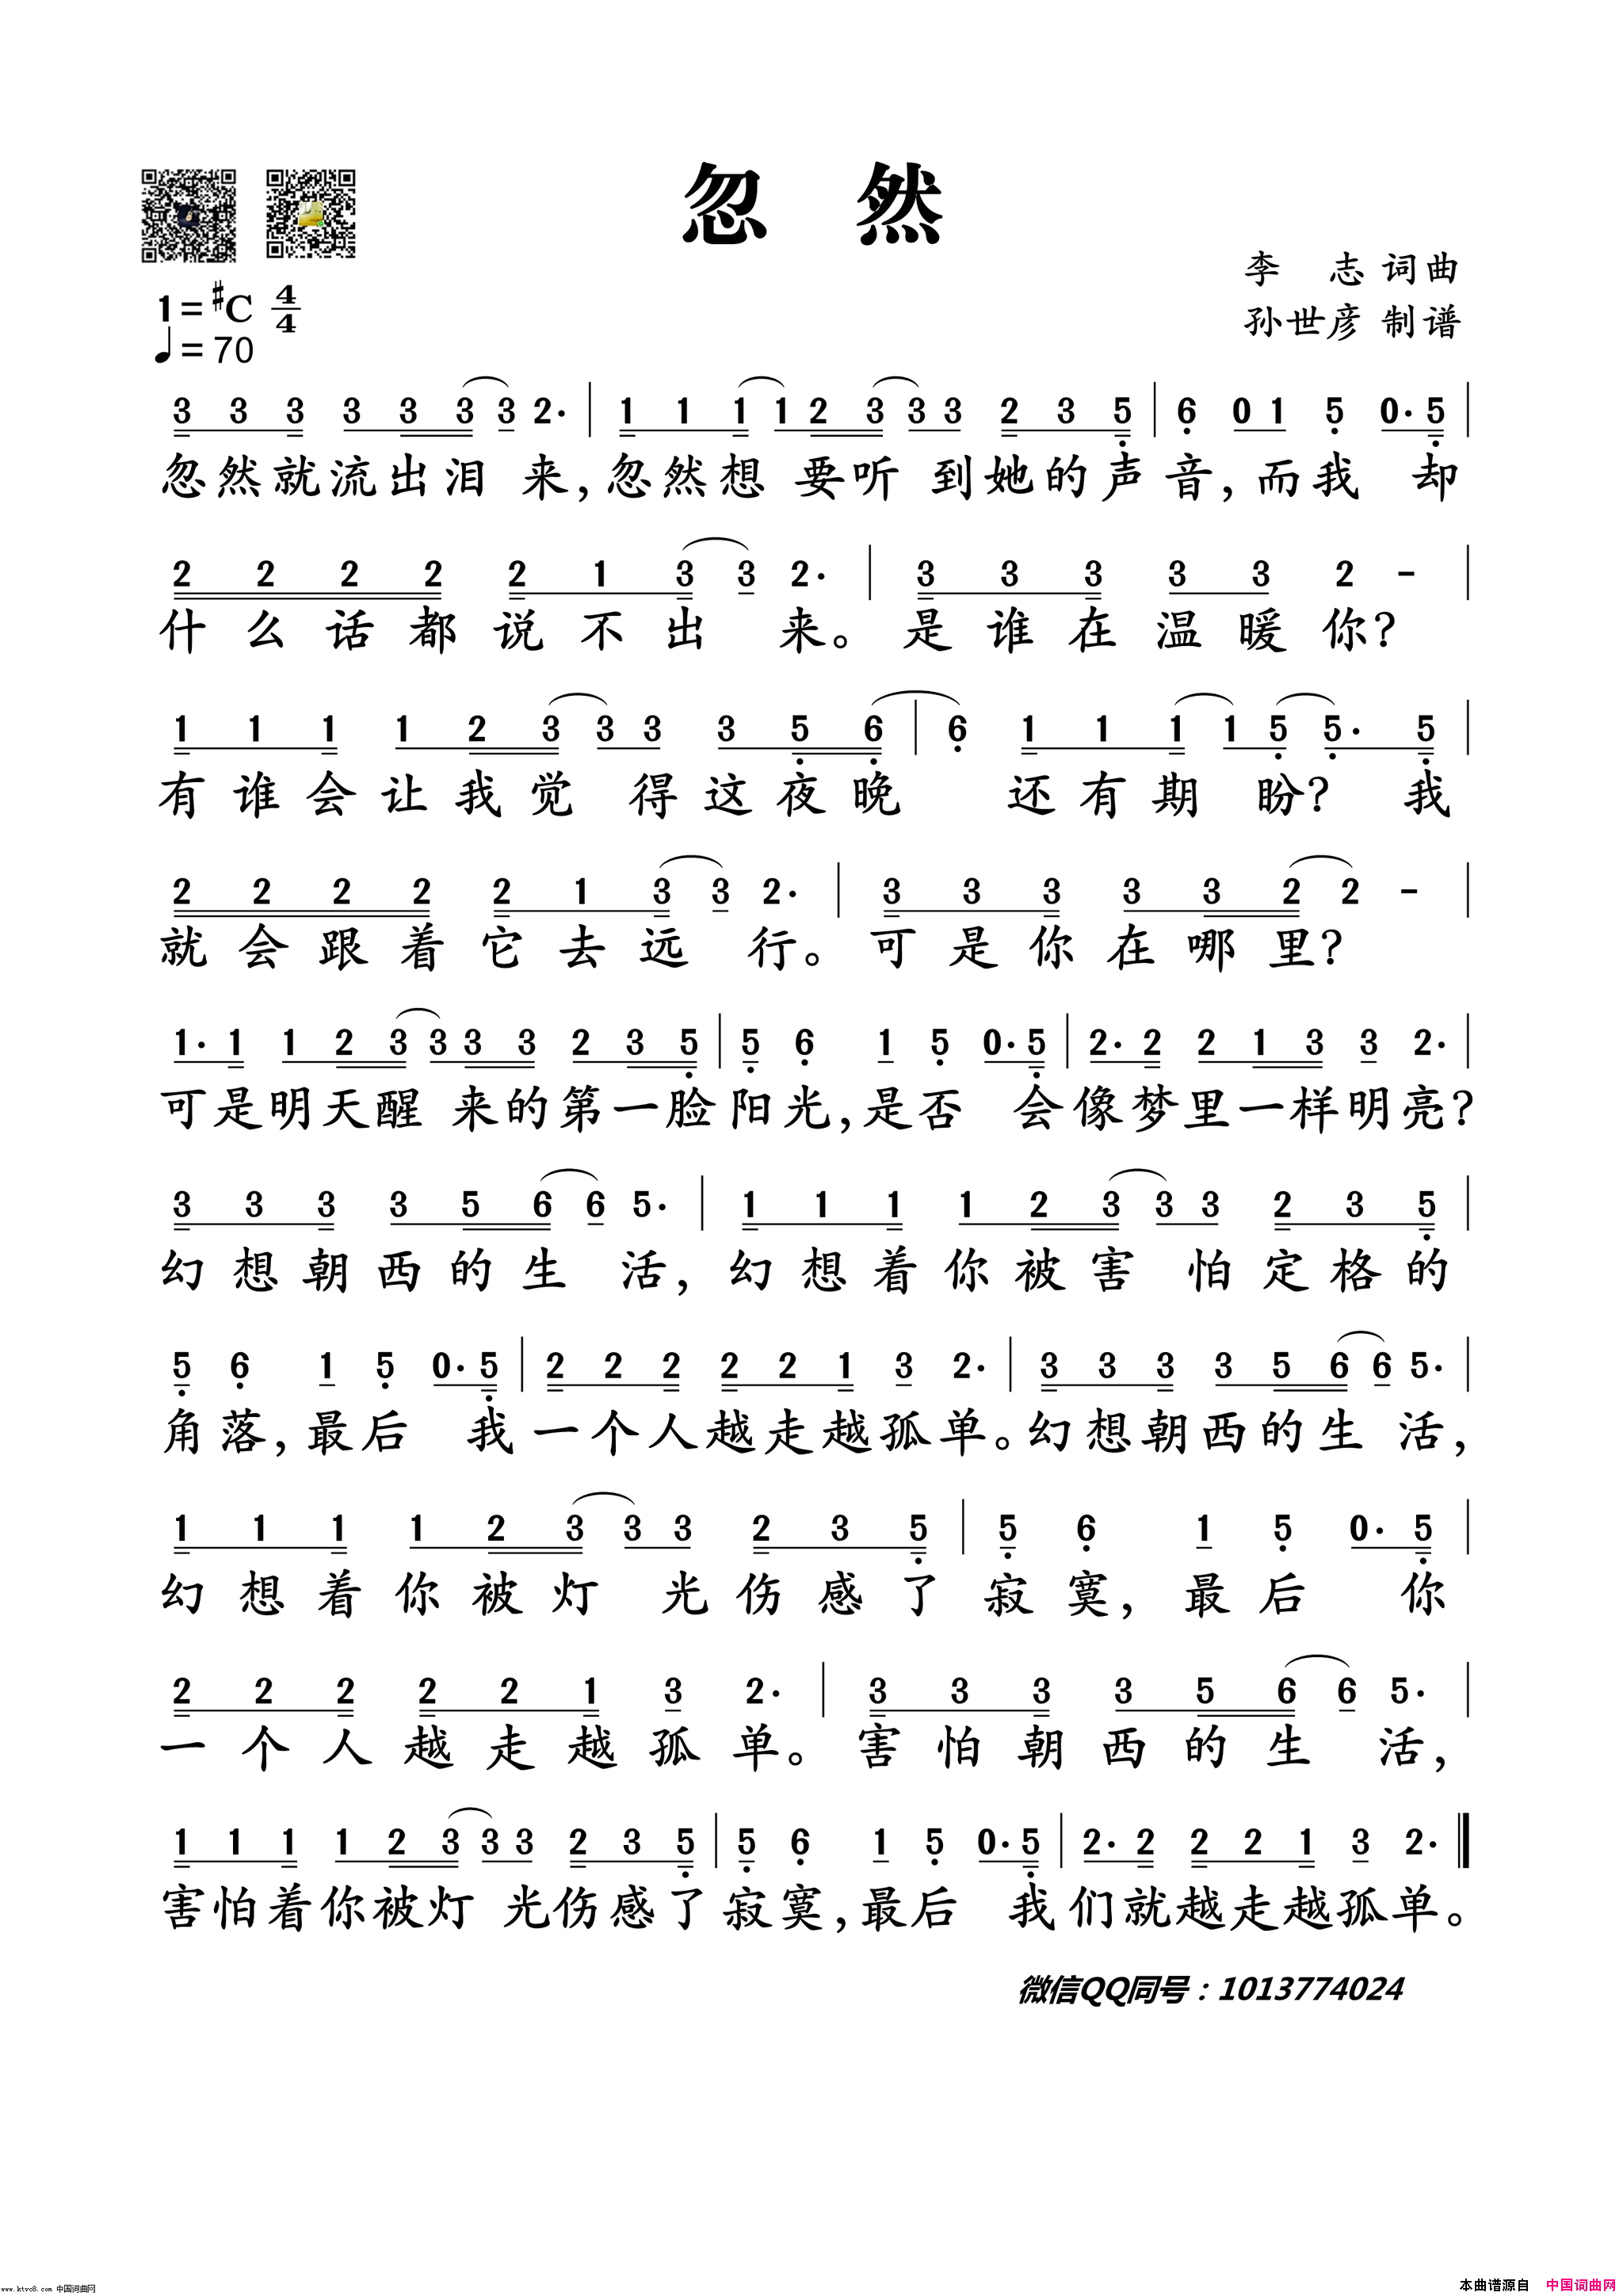 忽然
李 志 词曲
1=#C 4/4
孙世彦 制谱
♩=70
3 3 3 3 3 3 3 2· | 1 1 1 1 2 3 3 3 2 3 5 | 6 0 1 5 0· 5 |
忽然就流出泪 来,忽然想 要听 到她的声音,而我 却
2 2 2 2 2 1 3 3 2· | 3 3 3 3 3 2 - |
什么话都说不出 来。是谁在温暖你?
1 1 1 1 2 3 3 3 3 5 6 | 6 1 1 1 1 5 5· 5 |
有谁会让我觉 得这夜晚 还有期 盼? 我
2 2 2 2 2 1 3 3 2· | 3 3 3 3 3 2 2 - |
就会跟着它去远 行。可是你在哪里?
1· 1 1 2 3 3 3 3 2 3 5 | 5 6 1 5 0· 5 | 2· 2 2 1 3 3 2· |
可是明天醒 来的第一脸阳光,是否 会像梦里一样明亮?
3 3 3 3 5 6 6 5· | 1 1 1 1 2 3 3 3 2 3 5 |
幻想朝西的生 活,幻想着你被害 怕定格的
5 6 1 5 0· 5 | 2 2 2 2 2 1 3 2· | 3 3 3 3 5 6 6 5· |
角落,最后 我一个人越走越孤单。幻想朝西的生 活,
1 1 1 1 2 3 3 3 2 3 5 | 5 6 1 5 0· 5 |
幻想着你被灯 光伤感了寂寞,最后 你
2 2 2 2 2 1 3 2· | 3 3 3 3 5 6 6 5· |
一个人越走越孤单。害怕朝西的生 活,
1 1 1 1 2 3 3 3 2 3 5 | 5 6 1 5 0· 5 | 2· 2 2 2 1 3 2· ‖
害怕着你被灯 光伤感了寂寞,最后 我们就越走越孤单。
微信QQ同号：1013774024
www.ktvc8.com 中国词曲网
本曲谱源自 中国词曲网